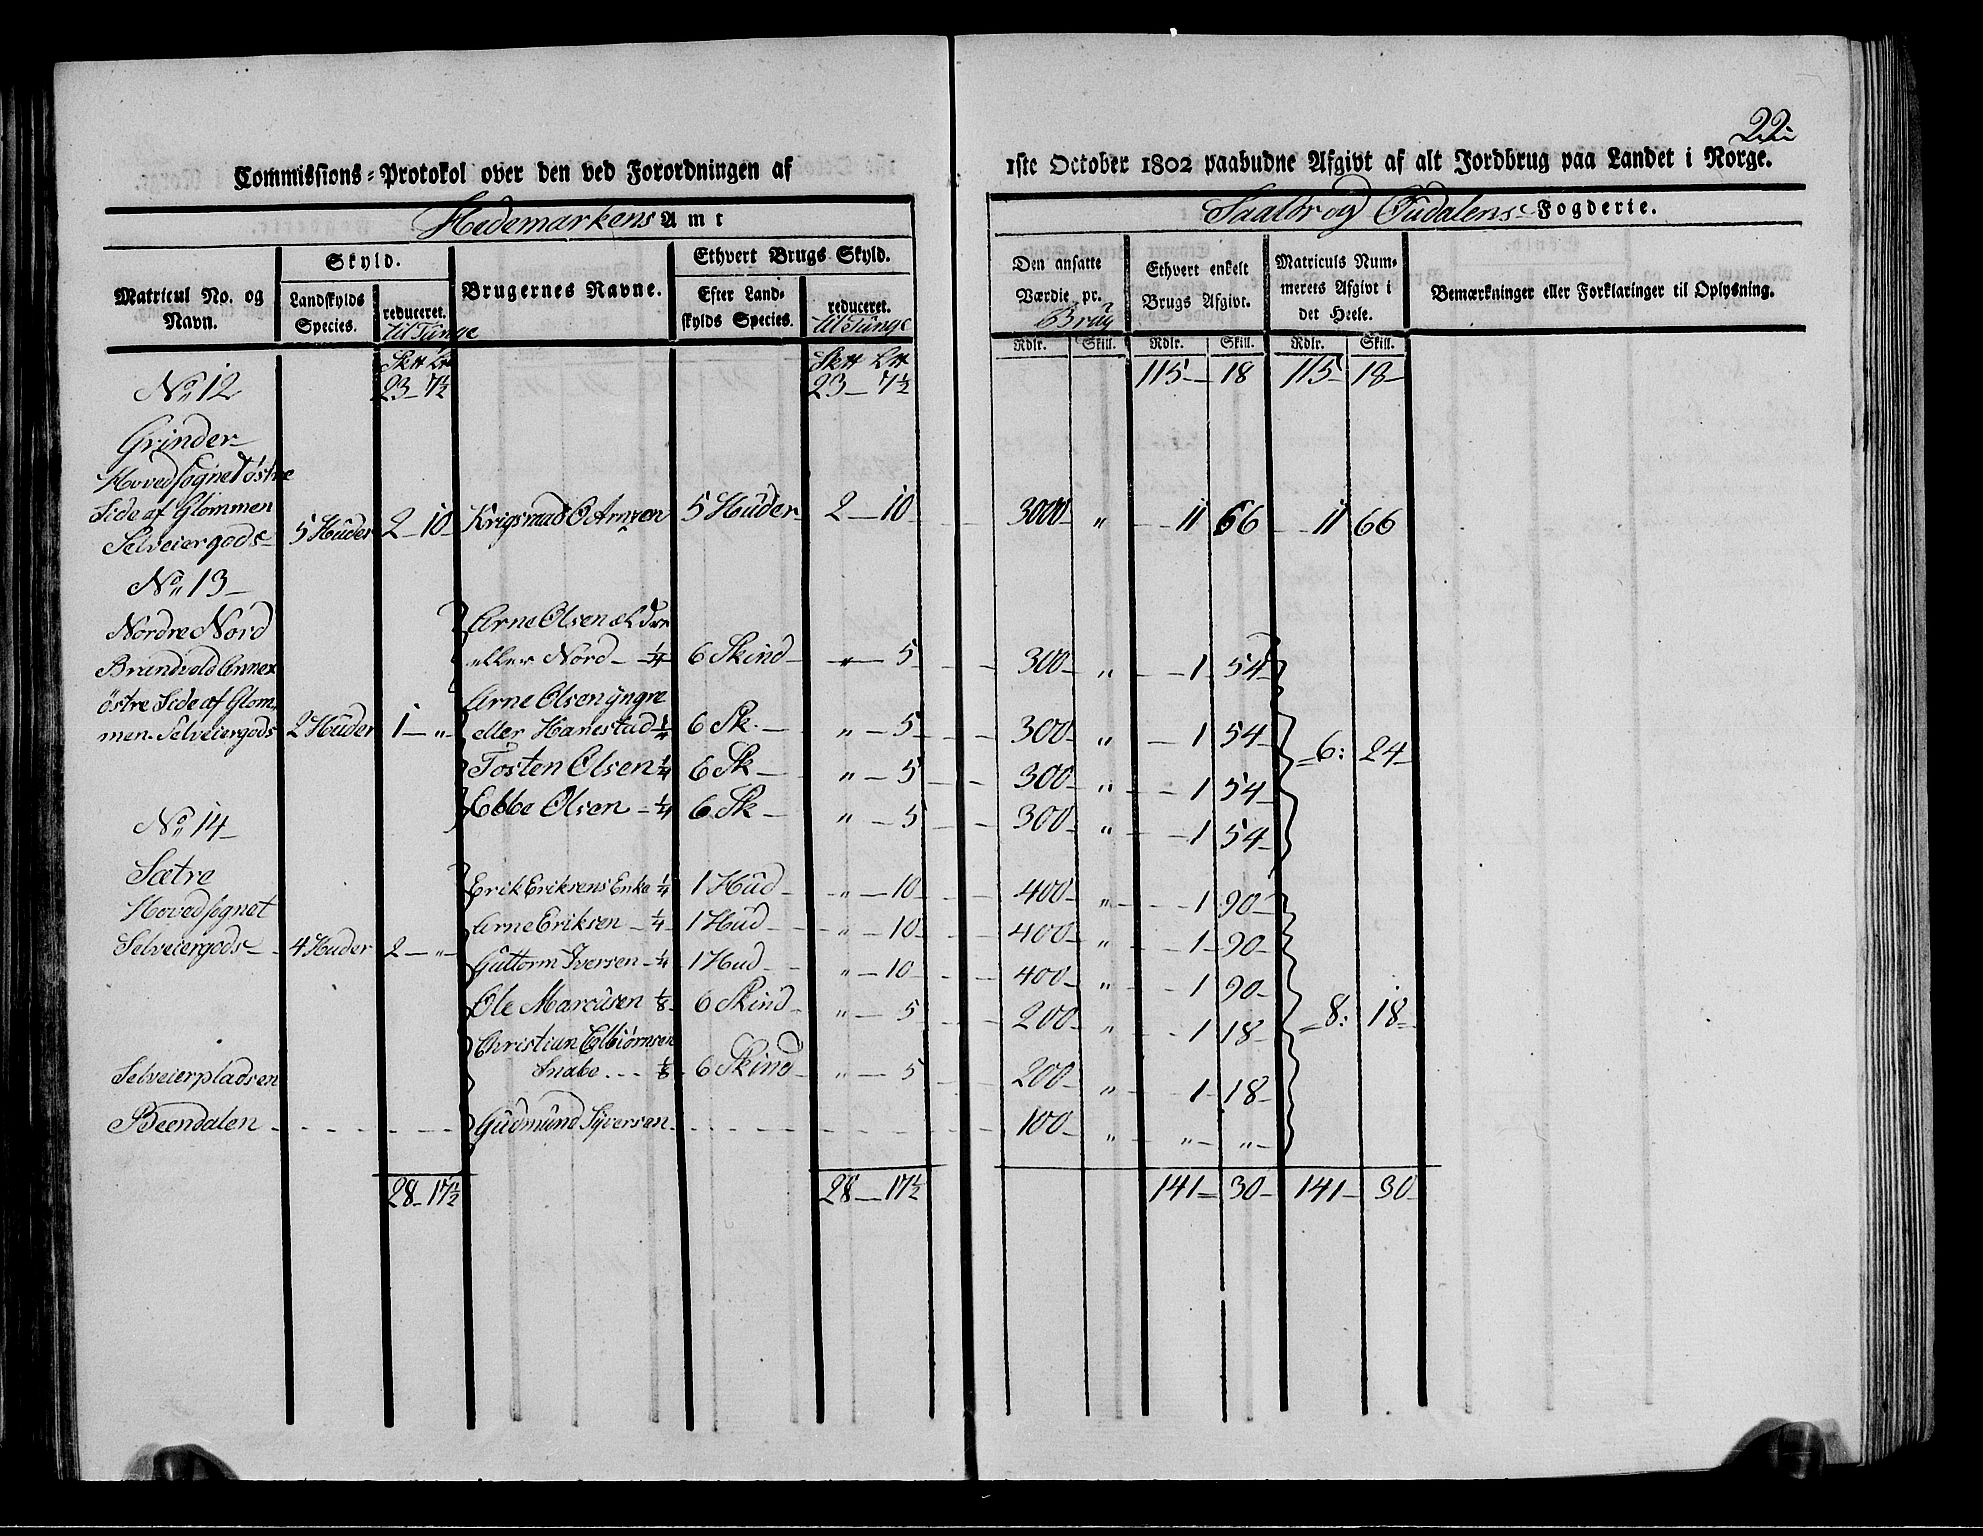 22
Commissions-Protokol over den ved Forordningen af 1ste October 1802 paabudne Afgivt af alt Jordbrug paa Landet i Norge.
Hedemarkens Amt
Saalør og Oudalens Fogderie.
Matricul No. og Navn.
Skyld.
Landskylds Species.
reduceret. til Tunge
Brugernes Navne.
Ethvert Brugs Skyld.
Efter Landskylds Species.
reduceret. til Tunge
Den ansatte Værdie pr. Brug
Ethvert enkelt Brugs Afgivt.
Matriculs Nummerets Afgivt i det Heele.
Bemærkninger eller Forklaringer til Oplysning.
Rdlr. Skill. Rdlr. Skill. Rdlr. Skill.
Sk℔ L℔ Sk℔ L℔
23 - 7½ 23 - 7½ 115 - 18 115 - 18 -
No 12
Grinder
Hovedsognet østre
Side af Glommen
Selveiergods 5 Huder 2 - 10 - Krigsraad O Arnzen 5 Huder 2 - 10 3000 " 11 66 11 66
No 13
Nordre Nord
Brandvold Annex
østre Side af Glom-
men. Selveiergods 2 Huder 1 - "
Arne Olsen ældre
eller Nord - ¼ 6 Skind - " - 5 300 - " 1 54
Arne Olsen yngre
eller Hanestad ¼ 6 Sk. - " - 5 300 - " 1 54
Tosten Olsen ¼ 6 Sk - " - 5 300 - " 1 54
Ebbe Olsen - ¼ 6 Sk - " - 5 300 - " 1 54
6: 24
No 14
Sætre
Hovedsognet
Selveiergods - 4 Huder 2 - "
Erik Eriksens Enke ¼ 1 Hud - " - 10 400 - " 1 90
Arne Eriksen - ¼ 1 Hud - " - 10 400 - " 1 90
Guttorm Iversen - ¼ 1 Hud - " - 10 400 - " 1 90
Ole Marcusen ⅛ 6 Skind - " - 5 200 - " 1 18
Christian Elbiørnsen
Snabe ... ⅛ 6 Skind - " - 5 200 - " 1 18
8: 18
Selveierpladsen
Beendalen - - - Gudmund Syversen - - - 100 - " " "
28 - 17½ 28 - 17½ 141 - 30 - 141 - 30